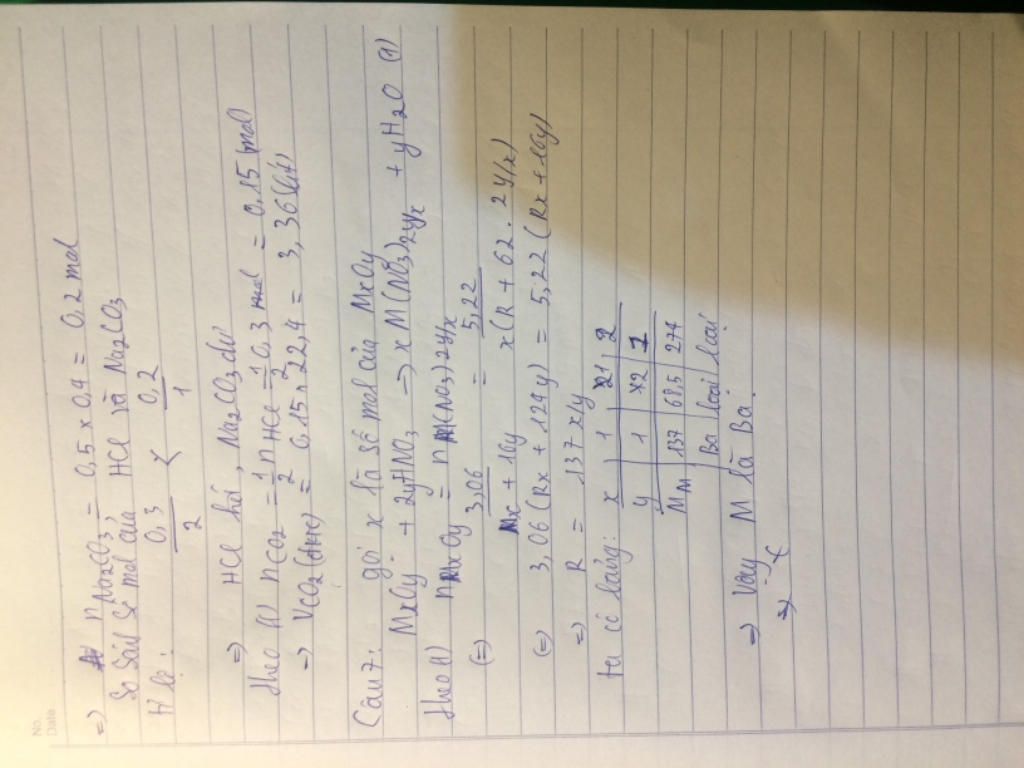 No.
Date
=> nNa2CO3 = 0,5 x 0,4 = 0,2 mol
So sánh số mol của HCl và Na2CO3
Tỉ lệ: 0,3/2 < 0,2/1
=> HCl hết, Na2CO3 dư
Theo (1) nCO2 = 1/2 nHCl = 1/2 0,3 = 0,15 mol
=> VCO2 (đktc) = 0,15 x 22,4 = 3,36 (lít)
Câu 7: gọi x là số mol của MxOy
MxOy + 2yHNO3 => x M(NO3)2y/x + yH2O (1)
Theo (1) nMxOy = nM(NO3)2y/x
(=) 3,06/Mx + 16y = 5,22/x(R + 62 . 2y/x)
(=) 3,06 (Rx + 124y) = 5,22 (Rx + 16y)
=> R = 137 x/y
ta có bảng: x 1 1 2
y 1 2 1
MM 137 68,5 274
Ba loại loại
=> Vậy M là Ba.